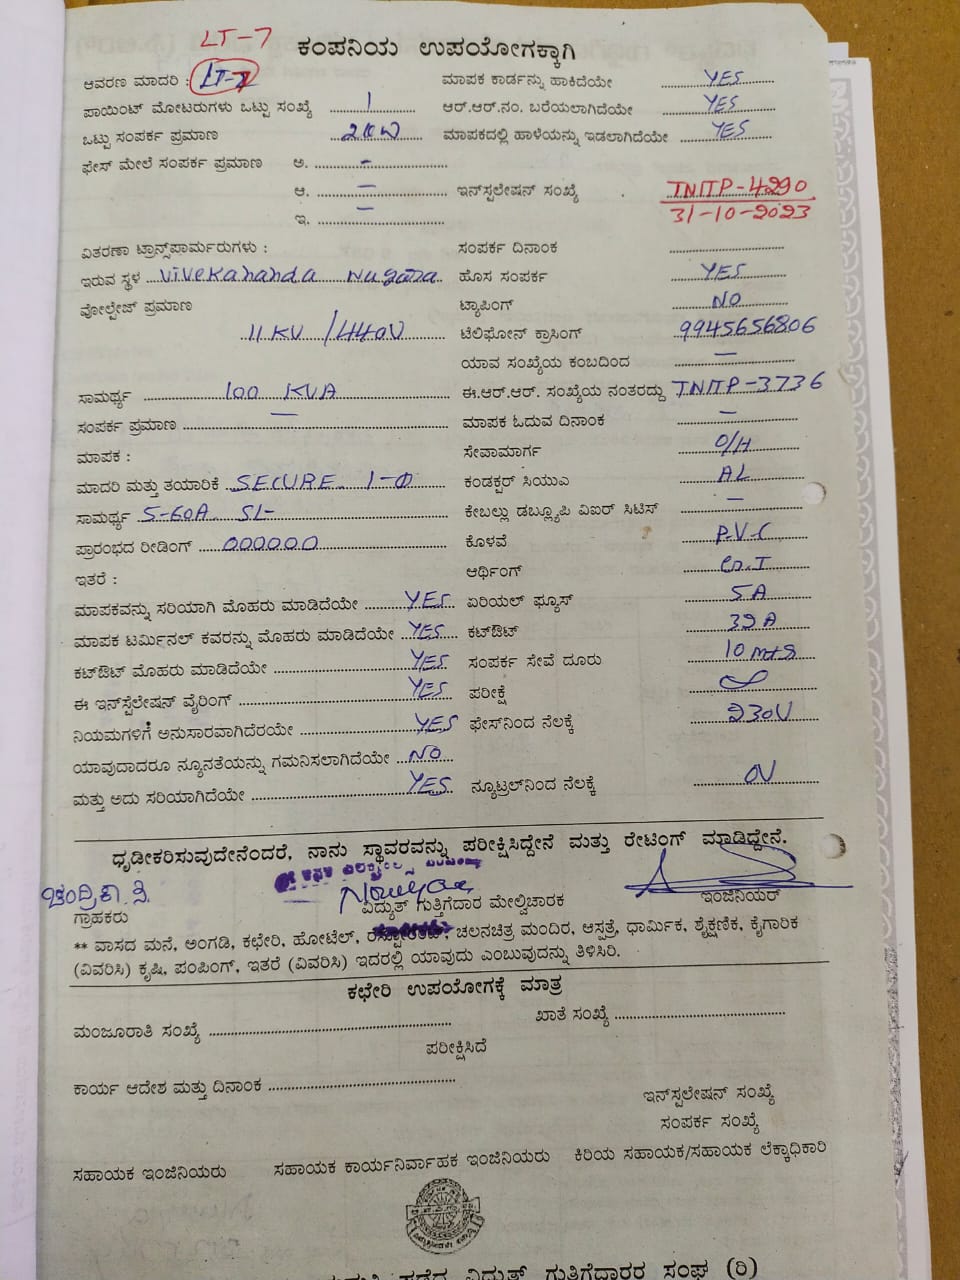 LT-7
ಕಂಪನಿಯ ಉಪಯೋಗಕ್ಕಾಗಿ
ಆವರಣ ಮಾದರಿ : LT-7 ಮಾಪಕ ಕಾರ್ಡನ್ನು ಹಾಕಿದೆಯೇ YES
ಪಾಯಿಂಟ್ ಮೋಟರುಗಳು ಒಟ್ಟು ಸಂಖ್ಯೆ 1 ಆರ್.ಆರ್.ನಂ. ಬರೆಯಲಾಗಿದೆಯೇ YES
ಒಟ್ಟು ಸಂಪರ್ಕ ಪ್ರಮಾಣ 2KW ಮಾಪಕದಲ್ಲಿ ಹಾಳೆಯನ್ನು ಇಡಲಾಗಿದೆಯೇ YES
ಫೇಸ್ ಮೇಲೆ ಸಂಪರ್ಕ ಪ್ರಮಾಣ ಅ. -
ಆ. - ಇನ್‌ಸ್ಪಲೇಷನ್ ಸಂಖ್ಯೆ . TNITP-4290
ಇ. - 31-10-2023
ವಿತರಣಾ ಟ್ರಾನ್ಸ್‌ಪಾರ್ಮರುಗಳು : ಸಂಪರ್ಕ ದಿನಾಂಕ
ಇರುವ ಸ್ಥಳ Vivekananda Nagara ಹೊಸ ಸಂಪರ್ಕ YES
ವೋಲ್ಟೇಜ್ ಪ್ರಮಾಣ ಟ್ಯಾಪಿಂಗ್ NO
11 KV / 440V ಟೆಲಿಫೋನ್ ಕ್ರಾಸಿಂಗ್ 9945656806
ಯಾವ ಸಂಖ್ಯೆಯ ಕಂಬದಿಂದ -
ಸಾಮರ್ಥ್ಯ 100 KVA ಈ.ಆರ್.ಆರ್. ಸಂಖ್ಯೆಯ ನಂತರದ್ದು TNITP-3736
ಸಂಪರ್ಕ ಪ್ರಮಾಣ - ಮಾಪಕ ಓದುವ ದಿನಾಂಕ -
ಮಾಪಕ : ಸೇವಾಮಾರ್ಗ O/H
ಮಾದರಿ ಮತ್ತು ತಯಾರಿಕೆ SECURE 1-Φ ಕಂಡಕ್ಟರ್ ಸಿಯುಎ AL
ಸಾಮರ್ಥ್ಯ 5-60A SL- ಕೇಬಲ್ಲು ಡಬ್ಲ್ಯೂಪಿ ವಿಐರ್ ಸಿಟಿಸ್ -
ಪ್ರಾರಂಭದ ರೀಡಿಂಗ್ 000000 ಕೊಳವೆ P.V.C
ಇತರೆ : ಆರ್ಥಿಂಗ್ G.I
ಮಾಪಕವನ್ನು ಸರಿಯಾಗಿ ಮೊಹರು ಮಾಡಿದೆಯೇ YES ಏರಿಯಲ್ ಫ್ಯೂಸ್ 5A
ಮಾಪಕ ಟರ್ಮಿನಲ್ ಕವರನ್ನು ಮೊಹರು ಮಾಡಿದೆಯೇ YES ಕಟ್‌ಔಟ್ 32A
ಕಟ್‌ಔಟ್ ಮೊಹರು ಮಾಡಿದೆಯೇ YES ಸಂಪರ್ಕ ಸೇವೆ ದೂರು 10 mts
ಈ ಇನ್‌ಸ್ಪೆಲೇಷನ್ ವೈರಿಂಗ್ YES ಪರೀಕ್ಷೆ ∞
ನಿಯಮಗಳಿಗೆ ಅನುಸಾರವಾಗಿದೆರಯೇ YES ಫೇಸ್‌ನಿಂದ ನೆಲಕ್ಕೆ 230V
ಯಾವುದಾದರೂ ನ್ಯೂನತೆಯನ್ನು ಗಮನಿಸಲಾಗಿದೆಯೇ NO
ಮತ್ತು ಅದು ಸರಿಯಾಗಿದೆಯೇ YES ನ್ಯೂಟ್ರಲ್‌ನಿಂದ ನೆಲಕ್ಕೆ 0V
ಧೃಡೀಕರಿಸುವುದೇನೆಂದರೆ, ನಾನು ಸ್ಥಾವರವನ್ನು ಪರೀಕ್ಷಿಸಿದ್ದೇನೆ ಮತ್ತು ರೇಟಿಂಗ್ ಮಾಡಿದ್ದೇನೆ.
ಚಂದ್ರಿಕಾ ಸಿ.
ಗ್ರಾಹಕರು ವಿದ್ಯುತ್ ಗುತ್ತಿಗೆದಾರ ಮೇಲ್ವಿಚಾರಕ ಇಂಜಿನಿಯರ್
** ವಾಸದ ಮನೆ, ಅಂಗಡಿ, ಕಛೇರಿ, ಹೋಟೆಲ್, ಚಲನಚಿತ್ರ ಮಂದಿರ, ಆಸ್ಪತ್ರೆ, ಧಾರ್ಮಿಕ, ಶೈಕ್ಷಣಿಕ, ಕೈಗಾರಿಕ
(ವಿವರಿಸಿ) ಕೃಷಿ, ಪಂಪಿಂಗ್, ಇತರೆ (ವಿವರಿಸಿ) ಇದರಲ್ಲಿ ಯಾವುದು ಎಂಬುವುದನ್ನು ತಿಳಿಸಿರಿ.
ಕಛೇರಿ ಉಪಯೋಗಕ್ಕೆ ಮಾತ್ರ
ಮಂಜೂರಾತಿ ಸಂಖ್ಯೆ ಖಾತೆ ಸಂಖ್ಯೆ
ಪರೀಕ್ಷಿಸಿದೆ
ಕಾರ್ಯ ಆದೇಶ ಮತ್ತು ದಿನಾಂಕ
ಇನ್‌ಸ್ಪಲೇಷನ್ ಸಂಖ್ಯೆ
ಸಂಪರ್ಕ ಸಂಖ್ಯೆ
ಸಹಾಯಕ ಇಂಜಿನಿಯರು ಸಹಾಯಕ ಕಾರ್ಯನಿರ್ವಾಹಕ ಇಂಜಿನಿಯರು ಕಿರಿಯ ಸಹಾಯಕ/ಸಹಾಯಕ ಲೆಕ್ಕಾಧಿಕಾರಿ
ಪಡೆದ ವಿದ್ಯುತ್ ಗುತ್ತಿಗೆದಾರರ ಸಂಘ (ರಿ)